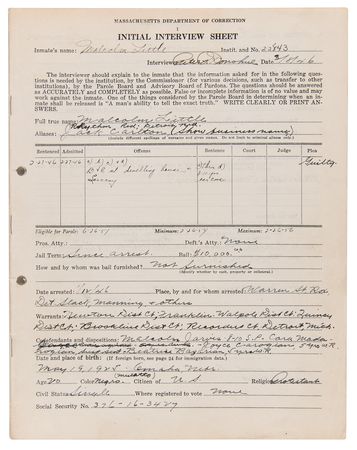 MASSACHUSETTS DEPARTMENT OF CORRECTION
1
INITIAL INTERVIEW SHEET
Inmate's name: Malcolm Little Instit. and No. 22843
Interviewer Date
The interviewer should explain to the inmate that the information asked for in the following ques-
tions is needed by the institution, by the Commissioner (for various decisions, such as transfer to other
institutions), by the Parole Board and Advisory Board of Pardons. The questions should be answered
as ACCURATELY and COMPLETELY as possible. False or incomplete information is of no value and may
work against the inmate. One of the things considered by the Parole Board in determining when an in-
mate shall be released is "A man's ability to tell the exact truth." WRITE CLEARLY OR PRINT AN-
SWERS.
Full true name Malcolm Little
Red, Detroit
Aliases: Jack Carlton (Show business name)
Sentenced Admitted Offense Sentence Court Judge Plea
2-27-46 2-27-46 Guilty
B&E at dwelling house &
Larceny
Eligible for Parole: Minimum: Maximum:
Pros. Atty.: Def't's Atty.: None
Jail Term: Since arrest. Bail: $10,000.
How and by whom was bail furnished? Not furnished
(Identify whether by cash, property or collateral.)
Date arrested: Where and by whom arrested: Warren St. Rox
Det Slack, Manning & others
Warrants: Newton Dist Ct. Franklin, Walpole Dist Ct. Quincy
Dist Ct. Brookline Dist Ct. Recorders Ct. Detroit, Mich.
Codefendants and dispositions: Malcolm Jarvis
Joyce
Beatrice
Date and place of birth: (If foreign born, see page 24 for immigration data.)
May 19, 1925 - Omaha, Nebr.
(mulatto)
Age 20 Color Negro Citizen of U.S. Religion Protestant
Civil Status Single Where registered to vote None
Social Security No. 376-16-3427